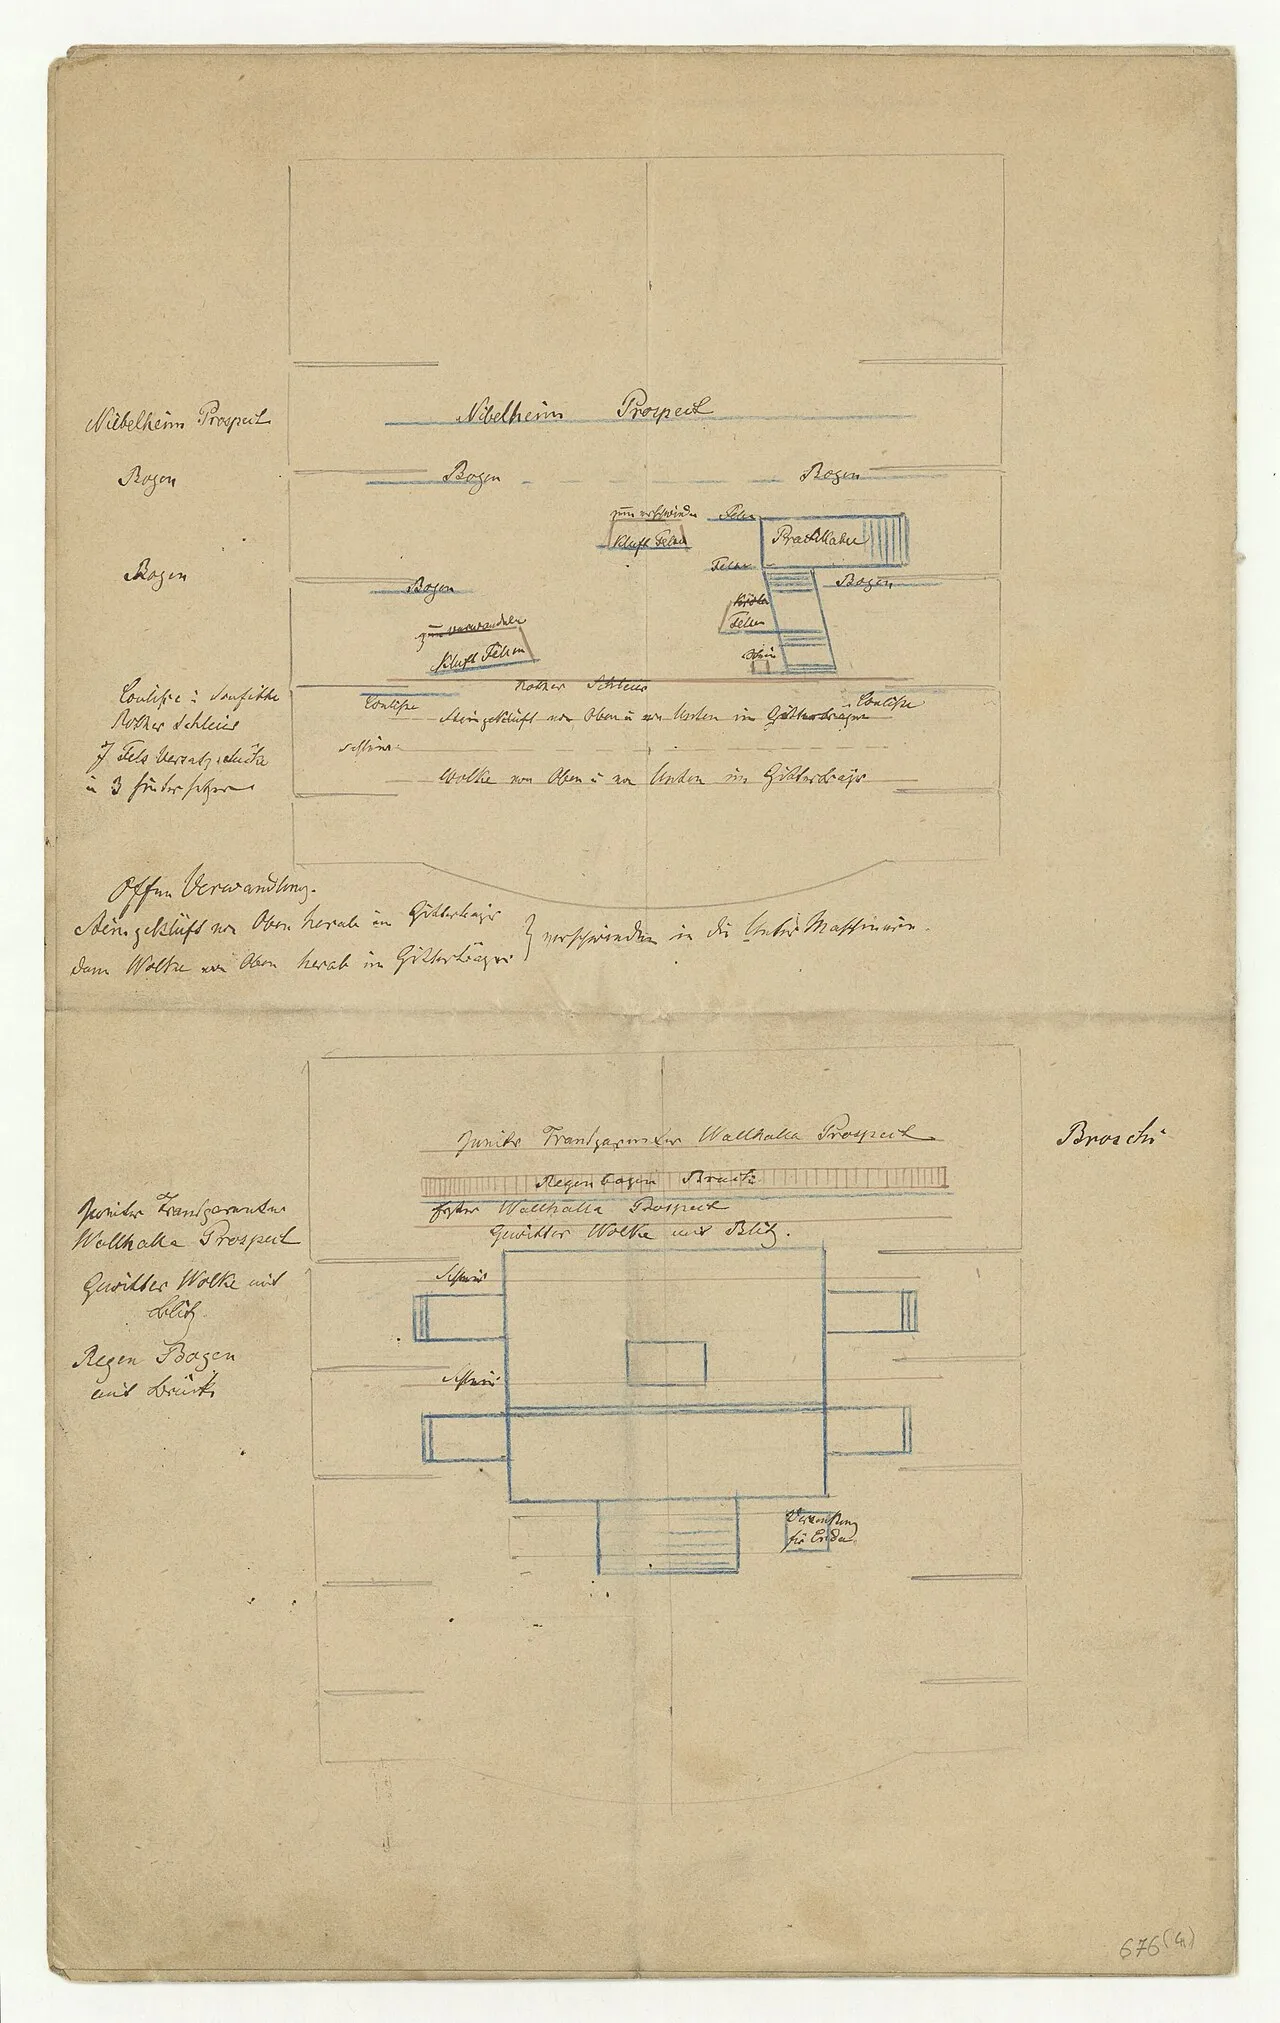 Nibelheim Prospect
Nibelheim Prospect
Bogen
Bogen
Bogen
zum verschwinden
Felsen
Kluft Felsen
Praktikabel
Felsen
Bogen
Bogen
Bogen
Felsen
zum verwandeln
Kluft Felsen
Stein
Rother Schleier
Coulisse u Soufitte
Rother Schleier
7 Fels Versatzstücke
u 3 Hintersetzer
Coulisse
Coulisse
Steingeklüft von Oben u von Unten im Gitterträger
Wolke von Oben u von Unten im Gitterträger
Offene Verwandlung.
Steingeklüft von Oben herab im Gitterträger
dann Wolke von Oben herab im Gitterträger
verschwinden in die Unter Maschinerie.
Zweiter Trandparenter Wallhalla Prospect
Broschi
Regenbogen Bruecke
Zweiter Trandparenter
Wallhalla Prospect
Erster Wallhalla Prospect
Gewitter Wolke mit Blitz.
Gewitter Wolke mit
Blitz.
Regen Bogen
mit Brücke
Versenkung
für Erda
676 (4)